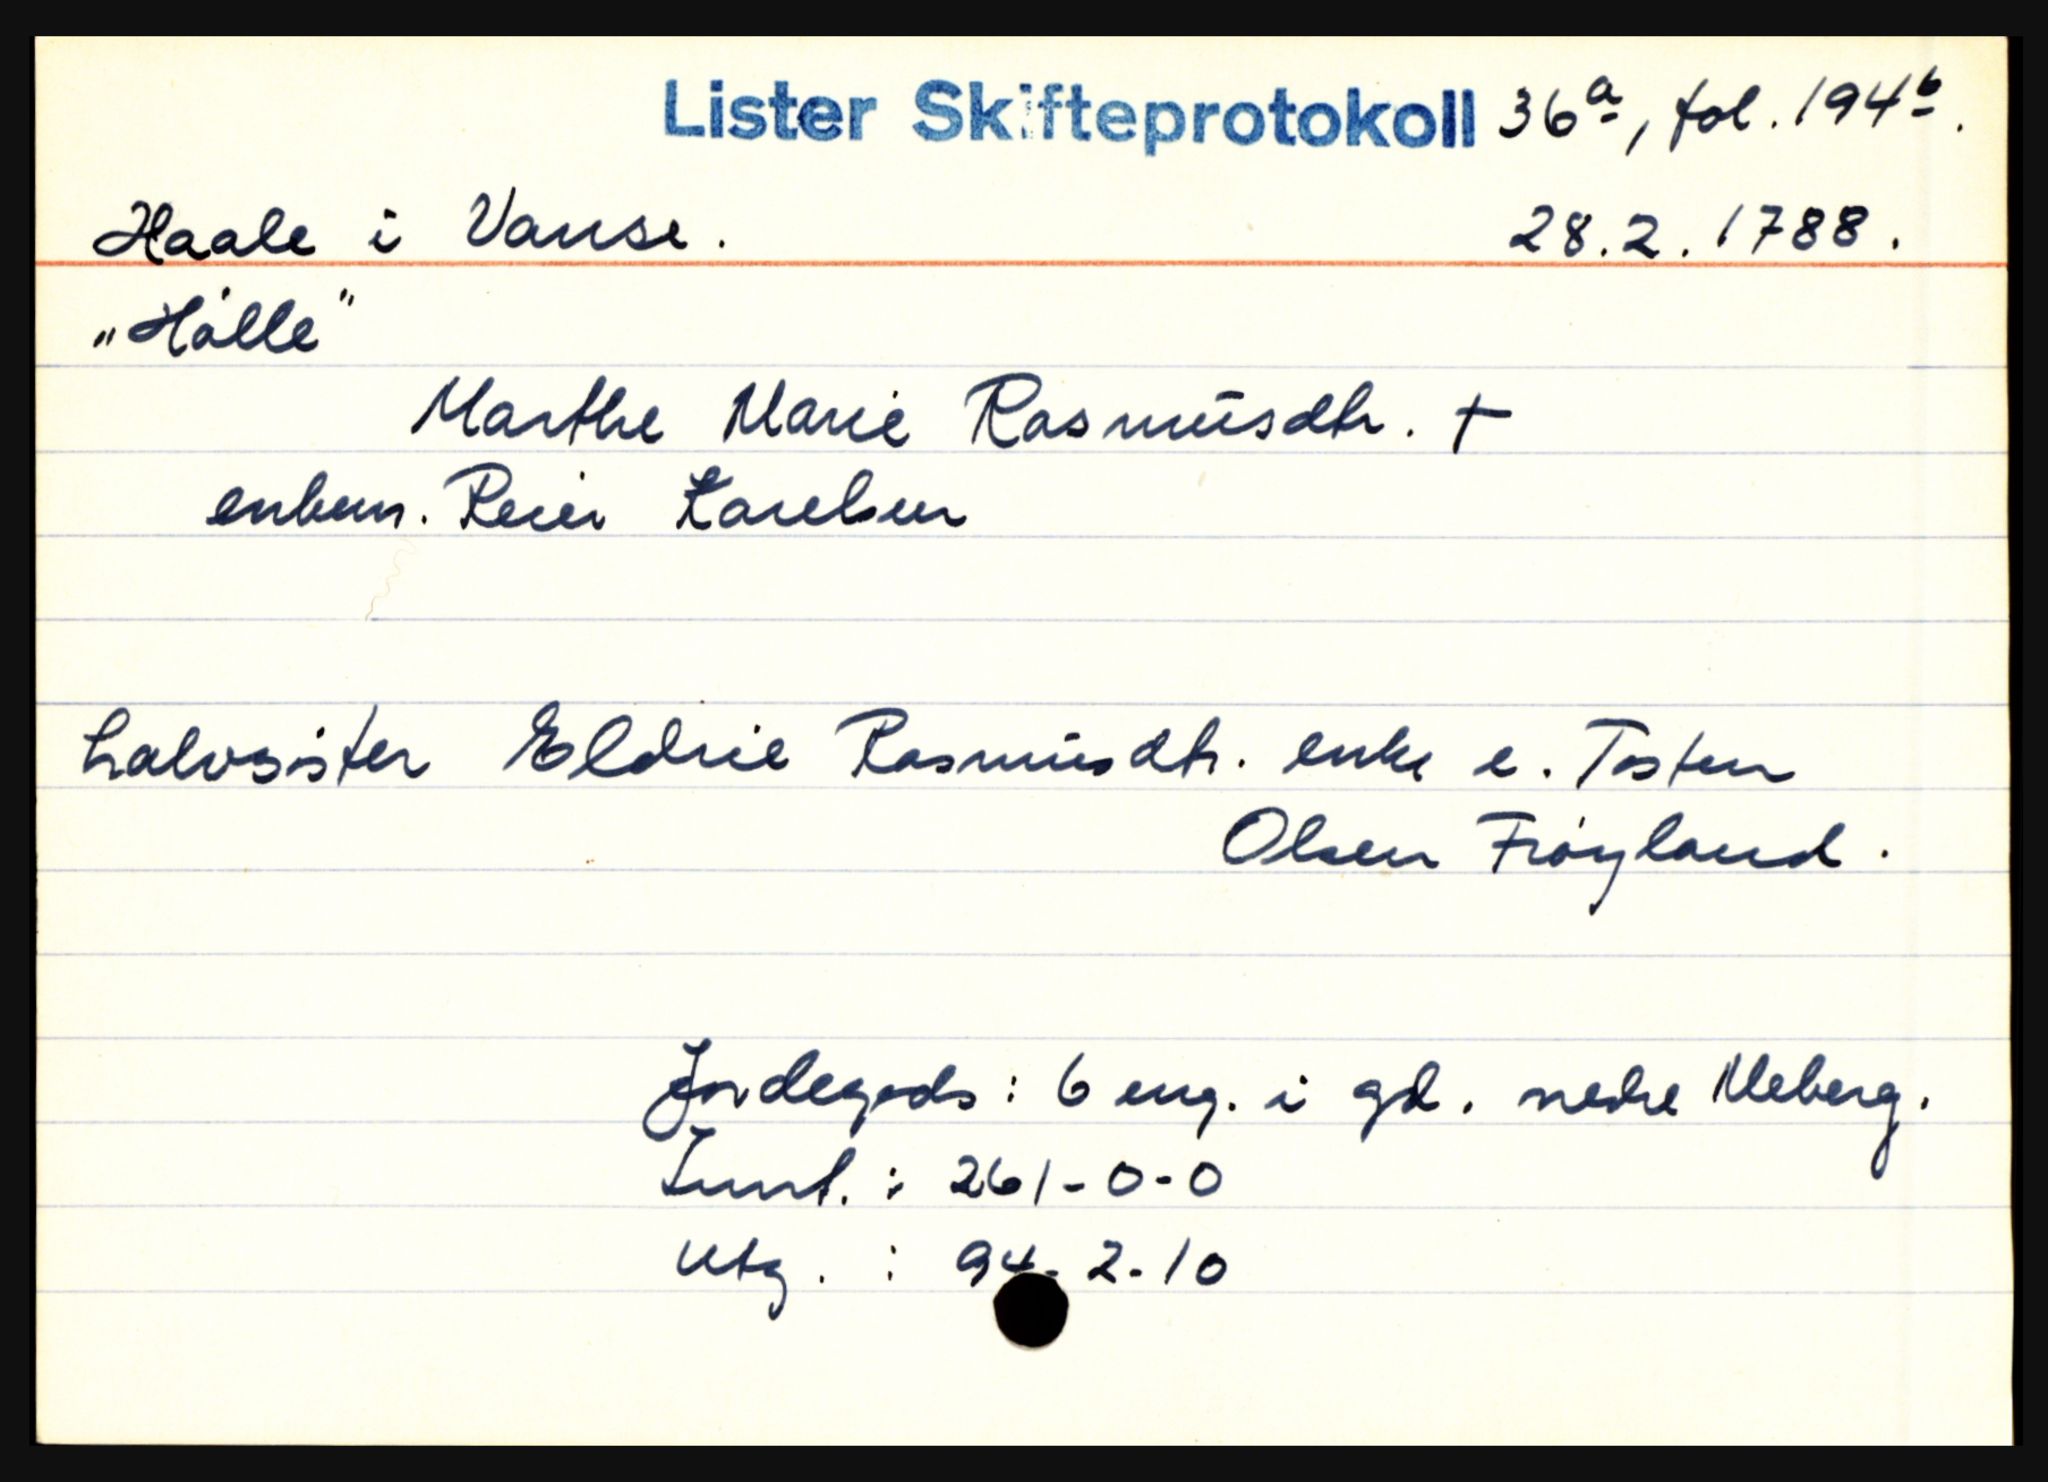 Lister Skifteprotokoll 36a, fol. 194b.
Haale i Vanse. 28.2.1788.
„Hålle"
Marthe Marie Rasmusdtr. +
enkem. Reier Karelsen
halvsøster Eldrie Rasmusdtr. enke e. Tosten
Olsen Frøyland.
Jordegods: 6 eng. i gd. nedre Meberg.
Innt. : 261-0-0
Utg. : 94-2-10